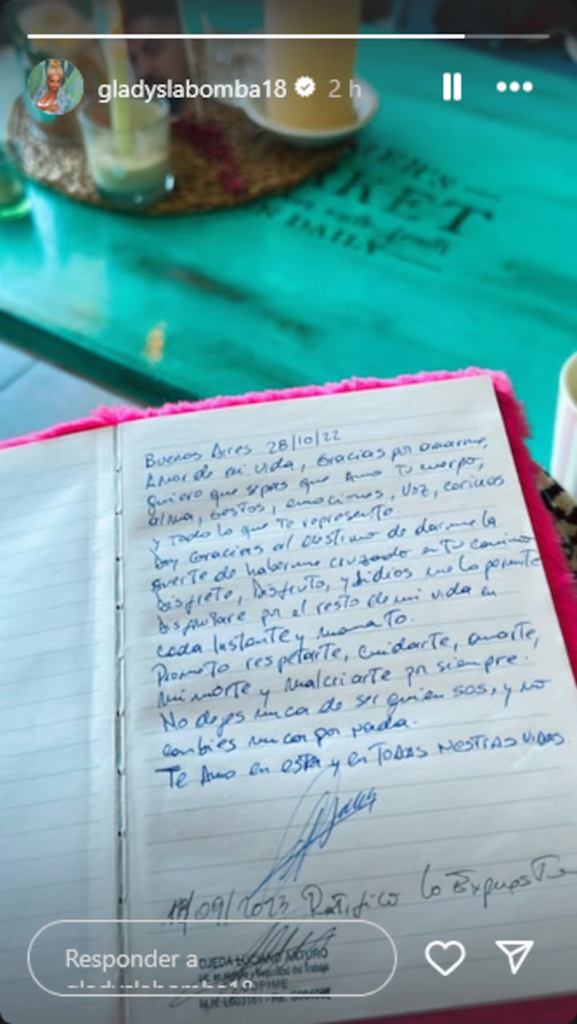 gladyslabomba18 2 h
MER'S
RKET
DAILY
Buenos Aires 28/10/22
Amor de mi vida, Gracias por amarme,
quiero que sepas que Amo Tu cuerpo,
alma, Gestos, emociones, Voz, caricias
y Todo lo que Te representa
Doy Gracias al destino de darme la
suerte de haberme cruzado en Tu camino
Disfrete, Disfruto, y si dios me lo permite
Disfrutare por el resto de mi vida en
cada Instante y momento.
Prometo respetarte, cuidarte, amarte,
mimarte y Malcriarte por siempre.
No dejes nunca de ser quien sos, y no
cambies nunca por nada.
Te Amo en esta y en TODAS NESTRAS VIDAS.
/09/2023 Ratifico lo Expuesto
OJEDA LUCIANO ARTURO
Responder a
gladyslabomba18